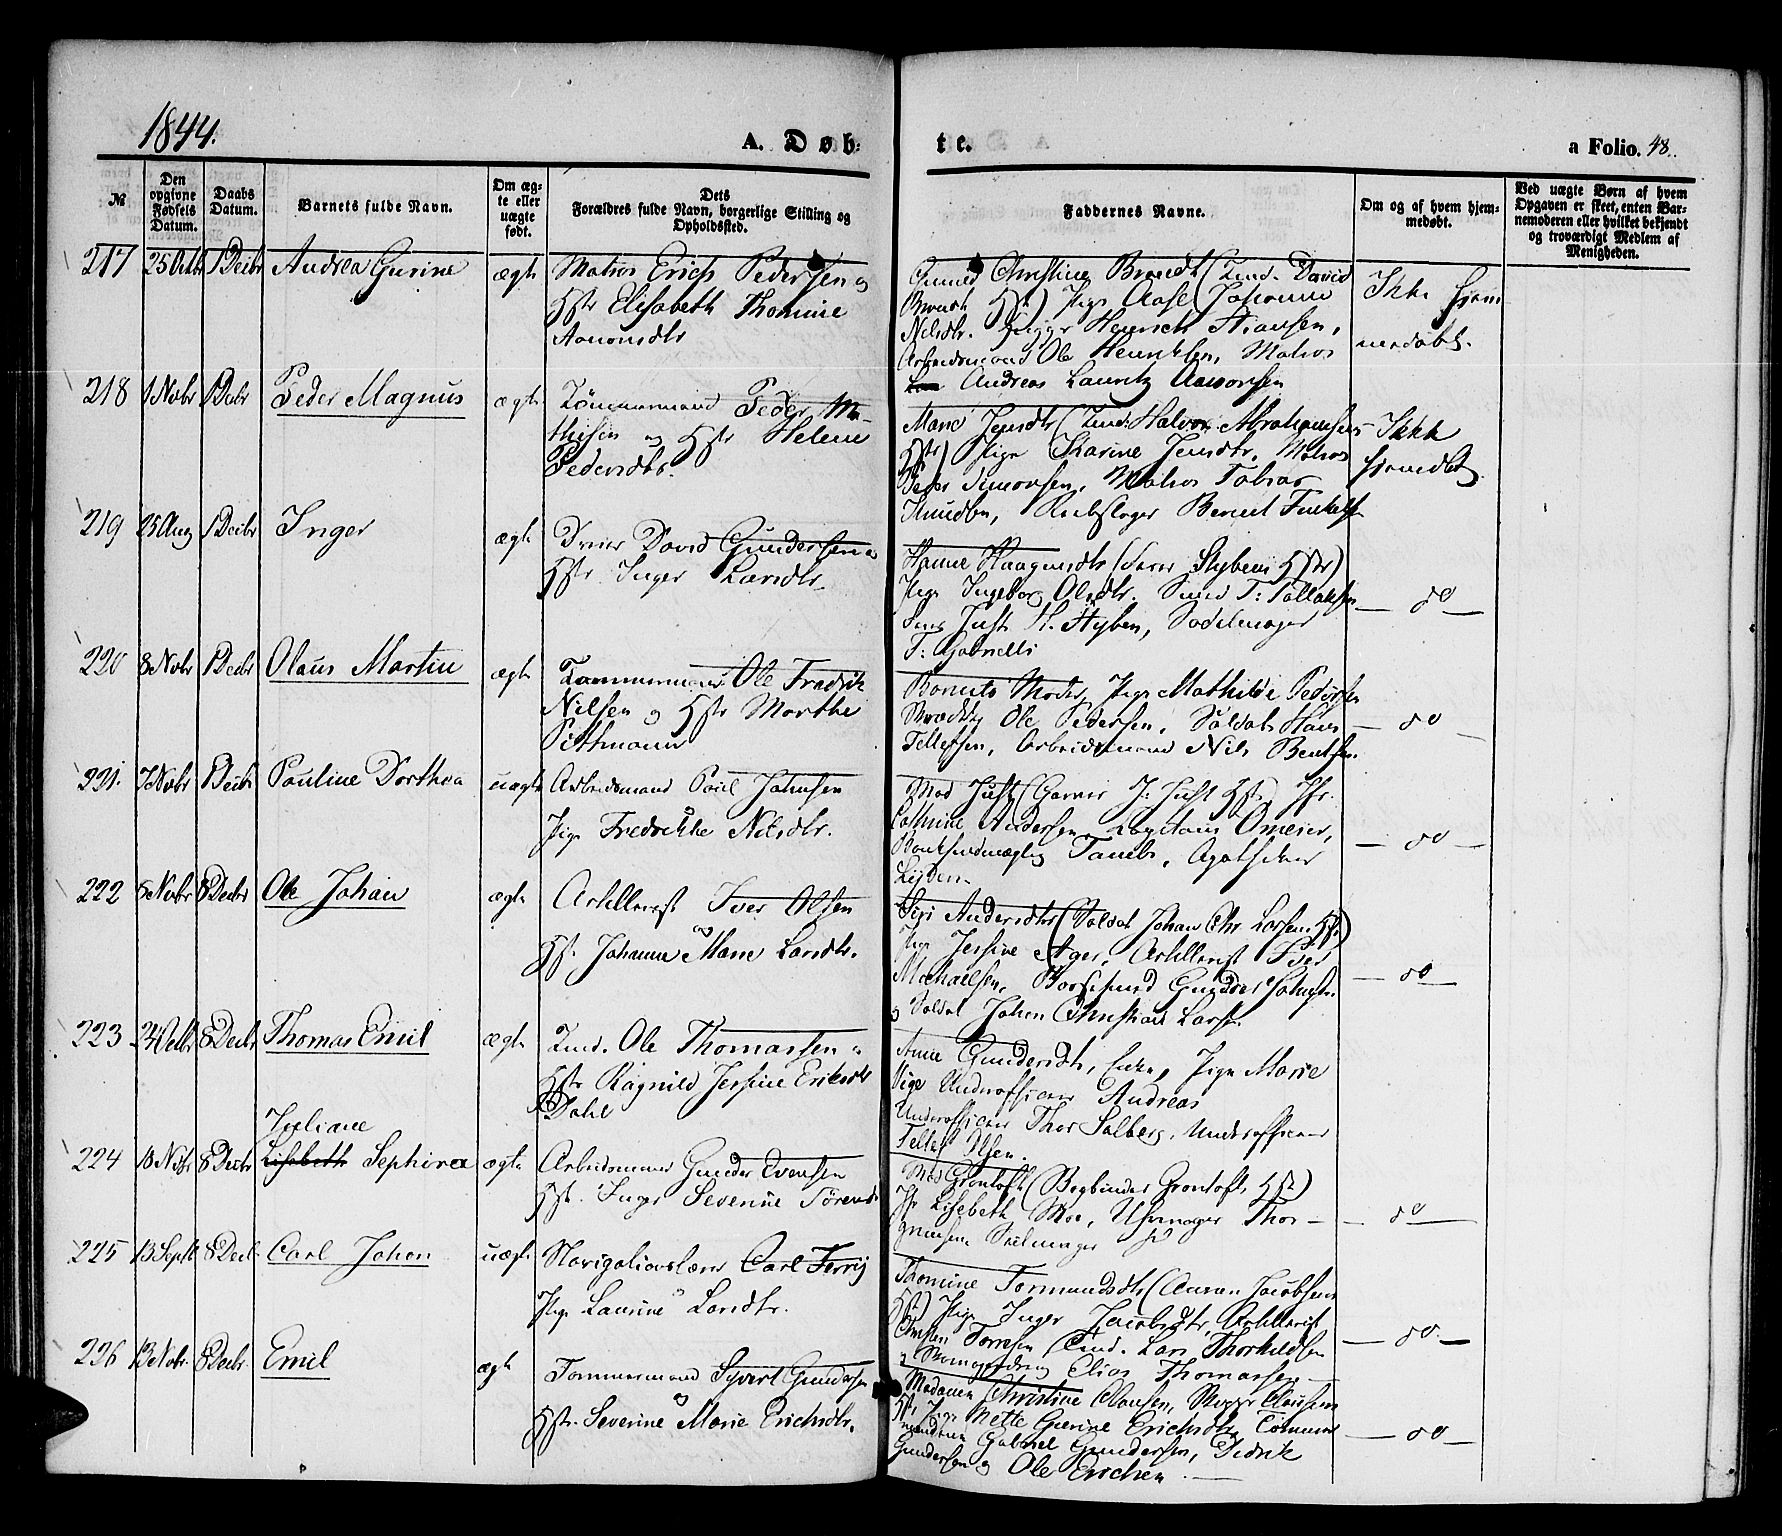 1844.
A. Døb=
te.
a Folio. 48.
№
Den opgivne Fødsels Datum.
Daabs Datum.
Barnets fulde Navn.
Om ægte eller uægte født.
Dets Forældres fulde Navn, borgerlige Stilling og Opholdssted.
Faddernes Navne.
Om og af hvem hjemmedøbt.
Ved uægte Børn af hvem Opgaven er skeet, enten Barnemoderen eller hvilket bekjendt og troværdigt Medlem af Menigheden.
217 25 Octb 1 Decbr Andrea Gurine ægte Matros Erich Pedersen og
Hstr Elisabeth Thomine
Aanonsdtr
Christine Brandt (Tmd. David
Brandt Hst) Pige Aasel Johanne
Nilsdtr. Henrich Hansen,
Arbeidsmand Ole Henriksen, Matros
Andreas Lauritz Aanonsen
Ikke hjem
medøbt.
218 1 Novbr 1 Debr Peder Magnus ægte Tømmermand Peder Ma-
thisen og Hstr Helene
Pedersdtr.
Marie Jensdtr (Tmd: Halvor Abrahamsens
Hstr) Pige Karine Jensdtr. Matros
Peder Simonsen, Matros Tobias
Knudsen, Rebslager Bernt
Ikke
hjemdbt
219 25 Aug 1 Decbr Inger ægte David Gundersen og
Hstr Inger Larsdtr.
Hanne Haagensdtr Hstr)
Pige Ingeborg Olsdtr. T: Tallaksen
Just H. Styben, Sadelmager
T: Gabrielli
— do —
220 8 Novbr 1 Decbr Olaus Martin ægte Tømmermand Ole Fredrik
Nilsen og Hstr Marthe
Pithmann
Barnets Moder, Pige Mathilde Pedersen
Ole Pedersen, Soldat Hans
Tellefsen, Arbeidsmand Nils Bentsen.
— do —
221. 7 Novbr 1 Decbr Pauline Dorthea uægte Arbeidsmand Poul Johnsen
Pige Fredrikke Nilsdtr.
Mad Just (Garver J: Just Hstr) Jfr.
Cathrine Andersen, Capitain Omeier,
Tambs, Apotheker
— do —
222 8 Novbr 8 Decbr Ole Johan ægte Artillerist Iver Olsen
og
Hst. Johanne Marie Larsdtr.
Siri Andersdtr (Soldat Johan Chr. Larsens Hst)
Pige Jessine Ager, Artillerist Iver
Michaelsen, Gunder
og Soldat Johan Christian Larsen
— do —
223 24 8 Decbr Thomas Emil ægte Tmd. Ole Thomassen og
Hstr Ragnild Jessine Eriksdtr
Dahl
Anne Gundersdtr, Enke, Pige Marie
Vige Underofficier Andreas
Underofficier Thor Solberg, Underofficier
Tellef Olsen.
Juliane
224 18 Nvbr 8 Decbr Lisebeth Sephina ægte Arbeidsmand Gunder Evensen
Hst. Inger Severine Sørensd.
Mad Grontoft (Bogbinder Grontoft Hst)
Jfr Lisebeth Moe, Uhrmager Thor-
grimsen
— do —
225 13 Septb 8 Decb. Carl Johan uægte Navigationslærer Carl Ferry
Pige Laurine Larsdtr.
Thomine Tormundsdtr (Aanon Jacobsens
Hst) Pige Inger Jacobsdtr, Artillerist
Torresen Tmd. Lars Thorkildsen
og Elias Thomassen
— do —
226 13 Novbr. 8 Decbr. Emil ægte Tømmermand Syvert Gundersen
og
Hstr. Severine Marie Erichsdtr.
Madame Christine Clausen, Clausens
Hst, Pige Mette Gurine Erichsdtr, Tømmer
mændene Gabriel Gundersen, Didrik
Gundersen og Ole Erichsen.
— do —